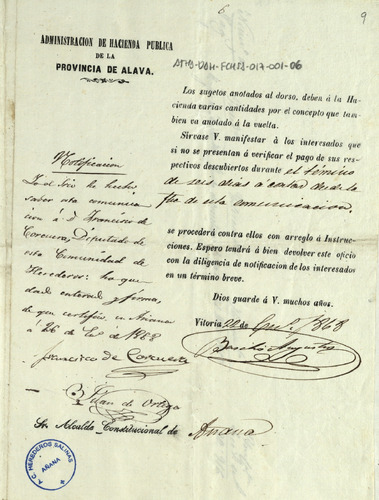 6
9
ADMINISTRACION DE HACIENDA PUBLICA
DE LA
PROVINCIA DE ALAVA.
ATHB-DAH-FCHSS-017-001-06
Los sugetos anotados al dorso, deben á la Ha-
cienda varias cantidades por el concepto que tam-
bien va anotado á la vuelta.
Sírvase V. manifestar á los interesados que
si no se presentan á verificar el pago de sus res-
pectivos descubiertos durante el término
de seis dias á contar desde la
fha de esta comunicacion.
se procederá contra ellos con arreglo á Instruc-
ciones. Espero tendrá á bien devolver este oficio
con la diligencia de notificacion de los interesados
en un término breve.
Dios guarde á V. muchos años.
Vitoria 22 de 1868
Basilio Augustin
Notificacion
he hecho
saber esta comunica
cion á D. Francisco de
Corcuera, Diputado de
esta Comunidad de
Herederos: ha que
dado enterado y firma,
de que certifico, en Añana
á 26 de 1868
Francisco de Corcuera
de Ortiza
Sr. Alcalde Constitucional de Añana
C. HEREDEROS SALINAS
AÑANA